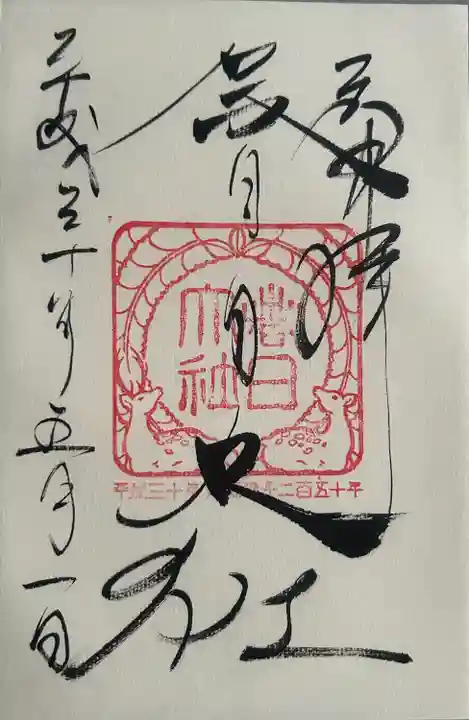 奉拝
春日大社
平成三十年五月一日
春日
大社
平成三十年 千二百五十年